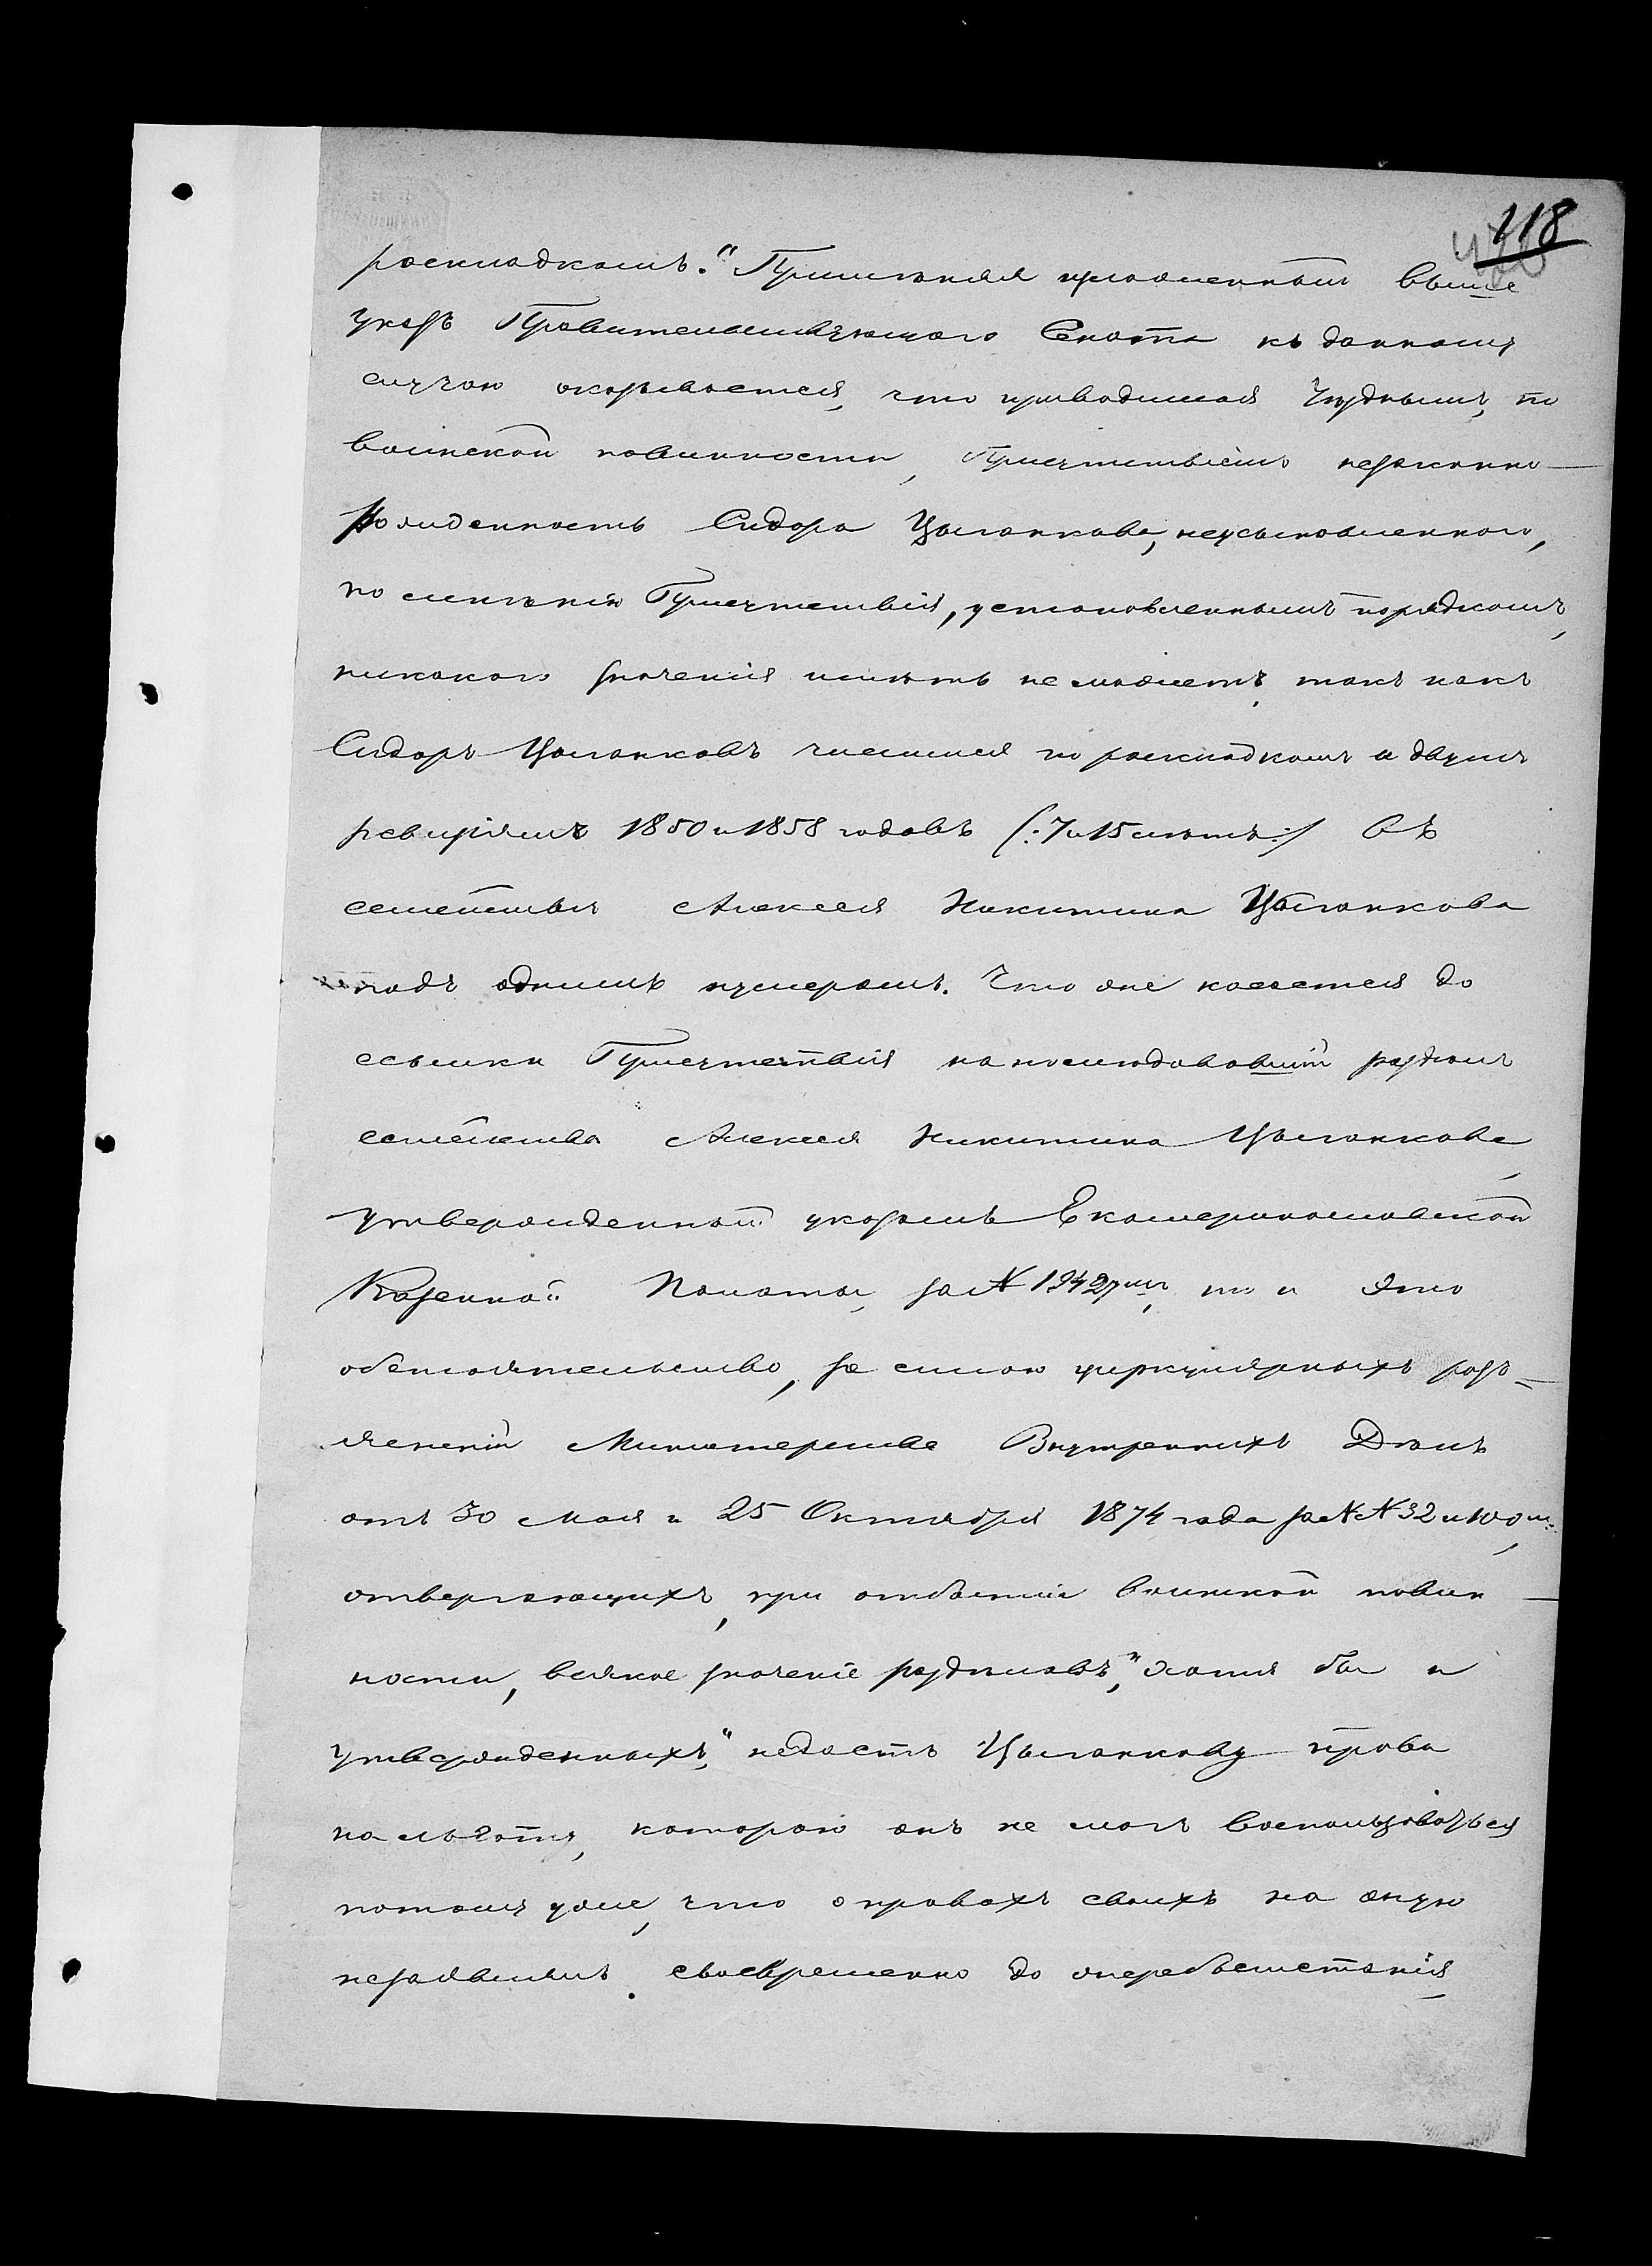 118
раскладкамъ." Примѣняя изложенный выше
указъ Правительствующаго Сената къ данному
случаю оказывается, что приводимая Уѣзднымъ, по
воинской повинности, Присутствіемъ незаконно-
рожденность Сидора Цыганкова, неусыновленнаго,
по мнѣнію Присутствія, установленнымъ порядкомъ,
никакого значенія имѣть не можетъ, такъ какъ
Сидоръ Цыганковъ числился по раскладкамъ и двумъ
ревизіямъ 1850 и 1858 годовъ /: 7 и 15 лѣтъ :/ въ
семействѣ Алексея Никитина Цыганкова
подъ однимъ нумеромъ. Что же касается до
ссылки Присутствія на послѣдовавшій раздѣлъ
семейства Алексея Никитина Цыганкова,
утвержденный указомъ Екатеринославской
Казенной Палаты, за №, то и это
обстоятельство, за силою циркулярныхъ разъ-
ясненій Министерства Внутреннихъ Дѣлъ
отъ 30 Мая и 25 Октября 1874 года за №№ 32 и 100 м.,
отвергающихъ, при отбытіи воинской повин-
ности, всякое значеніе раздѣловъ, "хотя бы и
утвержденныхъ," недаетъ Цыганкову права
на льготу, которою онъ не могъ воспользоваться
потому уже, что о правахъ своихъ на оную
незаявилъ своевременно до